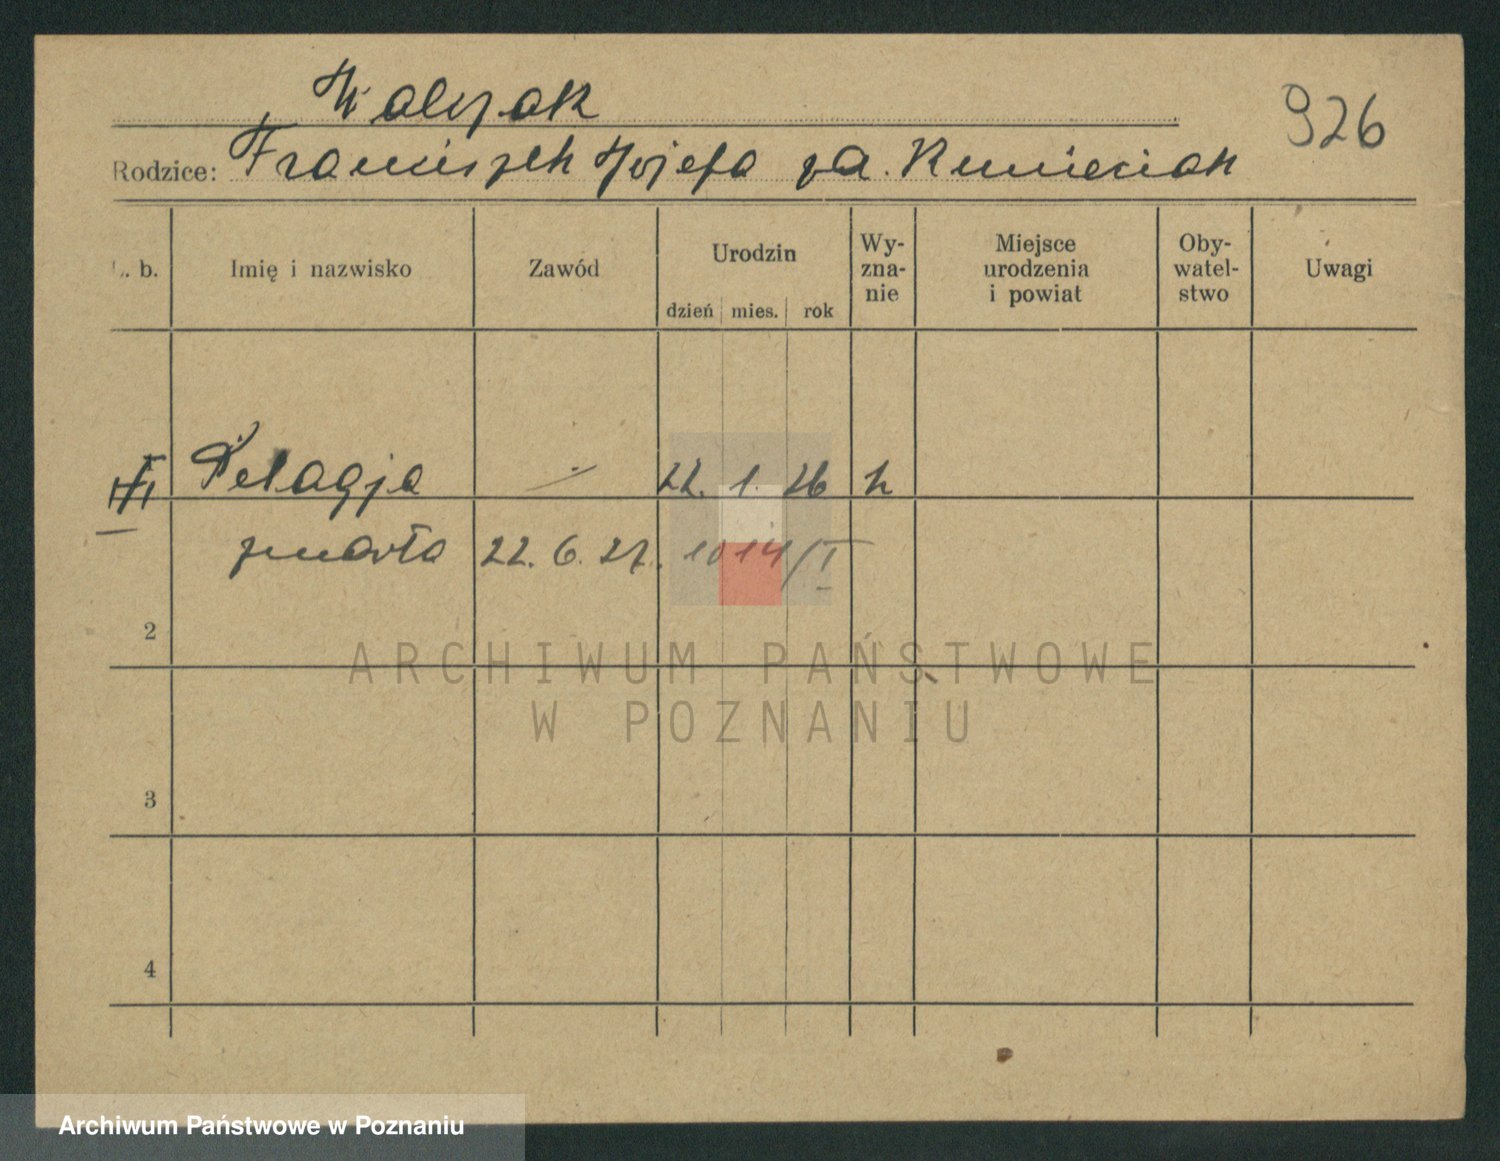 Walczak
926
Rodzice: Franciszek Józefa za.
L. b. Imię i nazwisko Zawód Urodzin dzień mies. rok Wy-zna-nie Miejsce urodzenia i powiat Oby-watel-stwo Uwagi
Pelagja 22. 1. 26
zmarła 22. 6. 27. 1014/I
2
ARCHIWUM PAŃSTWOWE
W POZNANIU
3
4
Archiwum Państwowe w Poznaniu